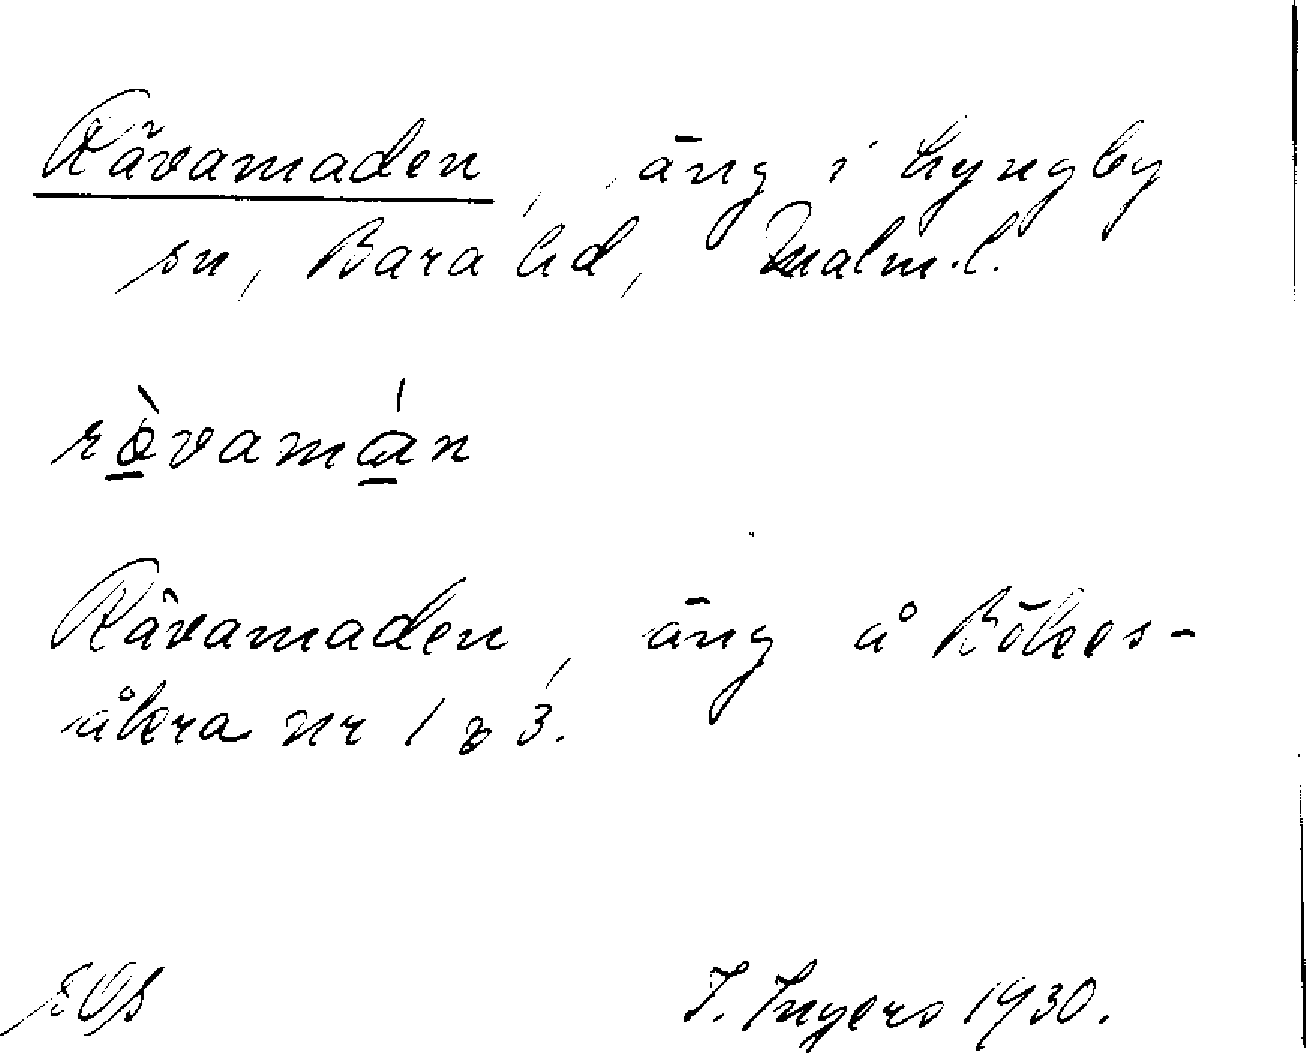 Rävamaden, äng i Lyngby
sn, Bara hd, Malm.l.
rävamán
Rävamaden, äng å Bökes-
åkra nr 1 o 3.
EOS
I. Ingers 1930.